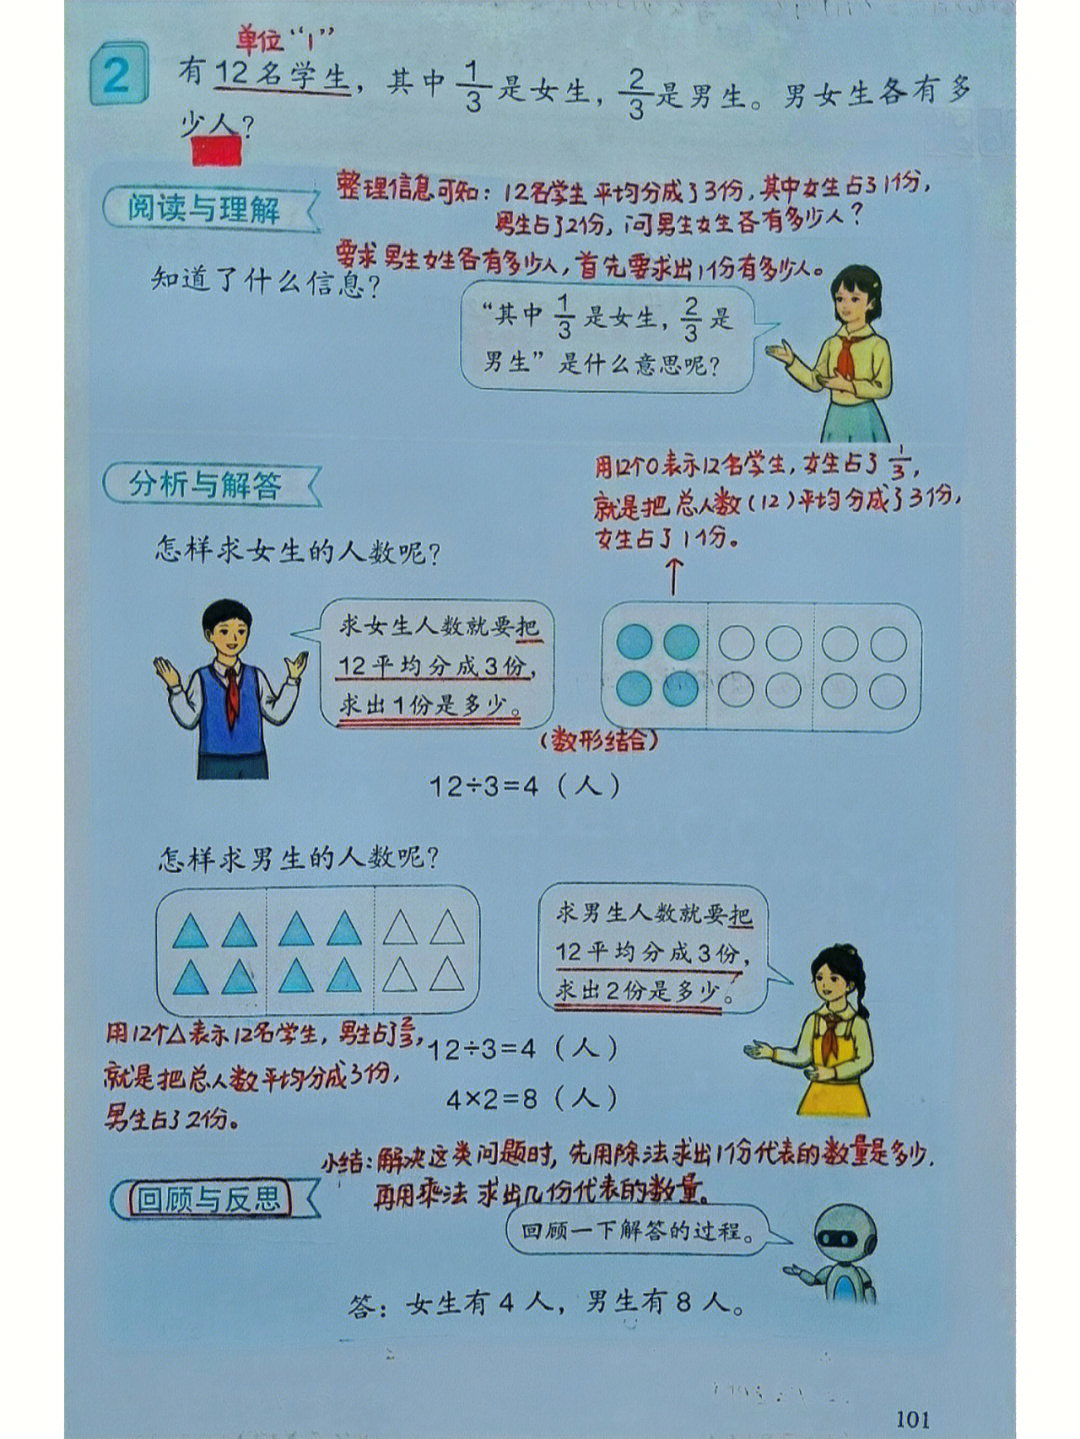 单位“1”
2 有12名学生，其中1/3是女生，2/3是男生。男女生各有多
少人？
整理信息可知：12名学生平均分成了3份，其中女生占了1份，
阅读与理解
男生占了2份，问男生女生各有多少人？
要求男生女生各有多少人，首先要求出1份有多少人。
知道了什么信息？
“其中1/3是女生，2/3是
男生”是什么意思呢？
用12个O表示12名学生，女生占了1/3，
分析与解答
就是把总人数（12）平均分成了3份，
女生占了1份。
怎样求女生的人数呢？
求女生人数就要把
12平均分成3份，
求出1份是多少。
（数形结合）
12÷3=4（人）
怎样求男生的人数呢？
求男生人数就要把
12平均分成3份，
求出2份是多少。
用12个△表示12名学生，男生占了2/3，
就是把总人数平均分成了3份，
男生占了2份。
12÷3=4（人）
4×2=8（人）
小结：解决这类问题时，先用除法求出1份代表的数量是多少.
再用乘法求出几份代表的数量。
回顾与反思
回顾一下解答的过程。
答：女生有4人，男生有8人。
101